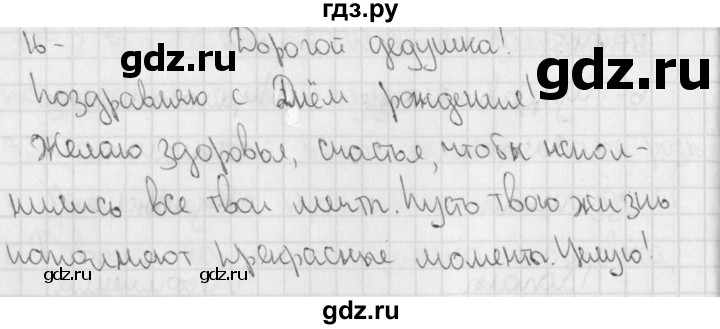 гдз.ру
16- Дорогой дедушка!
Поздравляю с Днём рождения!
Желаю здоровья, счастья, чтобы испол-
нились все твои мечты. Пусть твою жизнь
наполняют прекрасные моменты. Целую!
gdz.ru
gdz.ru
gdz.ru
gdz.ru
gdz.ru
gdz.ru
gdz.ru